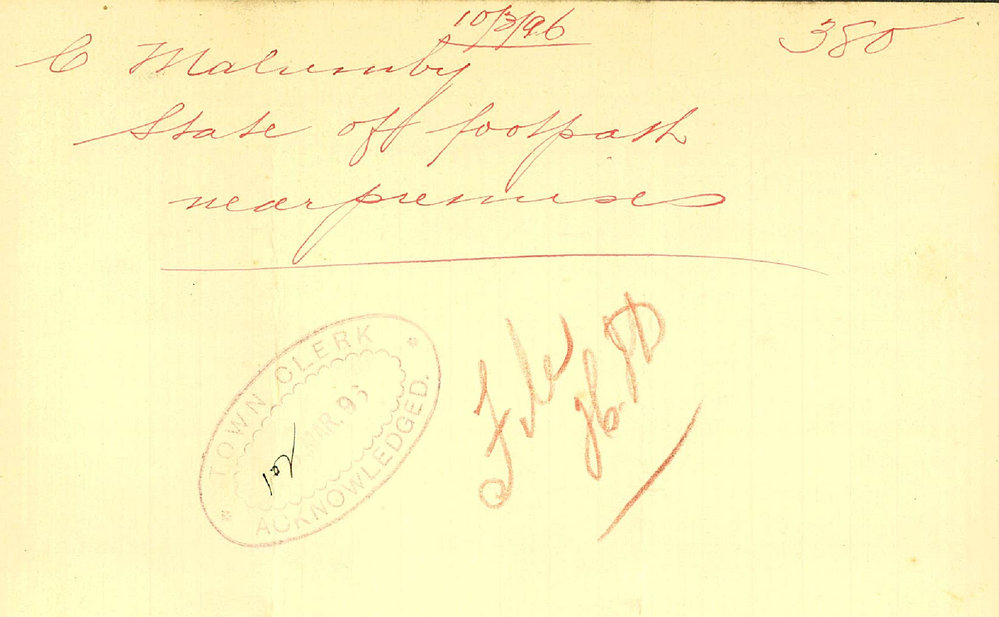 10/3/96
380
C Malumby
State of footpath
near premises
TOWN CLERK
MAR. 96
ACKNOWLEDGED.
File